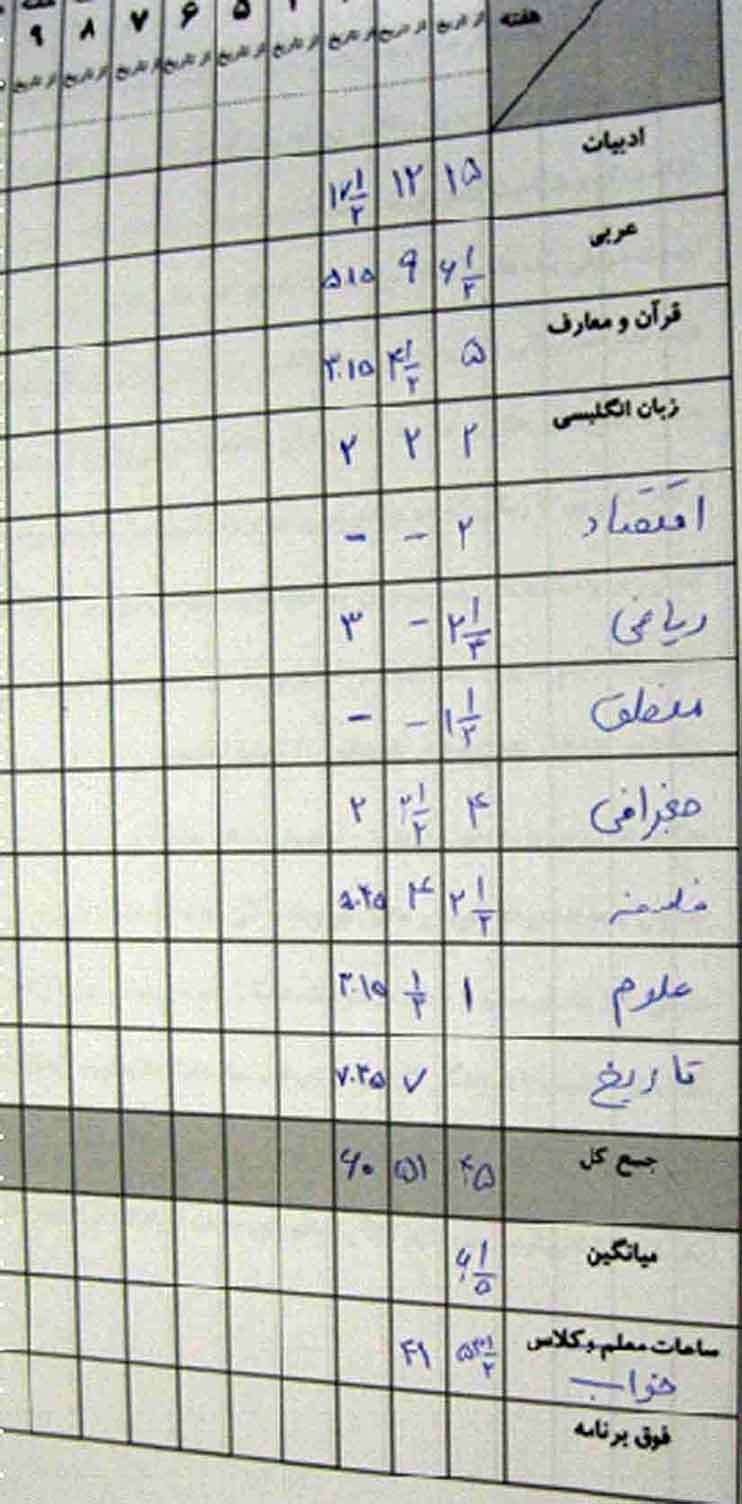 هفته ۵ ۶ ۷ ۸ ۹
از تاریخ از تاریخ از تاریخ از تاریخ از تاریخ از تاریخ از تاریخ از تاریخ از تاریخ
ادبیات ۱۵ ۱۲ ۱۷ ۱/۲
عربی ۶ ۱/۲ ۹ ۵.۱۵
قرآن و معارف ۵ ۴ ۱/۲ ۳.۱۵
زبان انگلیسی ۲ ۲ ۲
اقتصاد ۲ - -
ریاضی ۲ ۱/۳ - ۳
منطق ۱ ۱/۲ - -
جغرافی ۴ ۲ ۱/۲ ۲
فلسفه ۲ ۱/۲ ۴ ۵.۴۵
علوم ۱ ۱/۲ ۳.۱۵
تاریخ ۷ ۷.۳۵
جمع کل ۴۵ ۵۱ ۶۰
میانگین ۶ ۱/۵
ساعات معلم و کلاس
خواب ۴۱
فوق برنامه